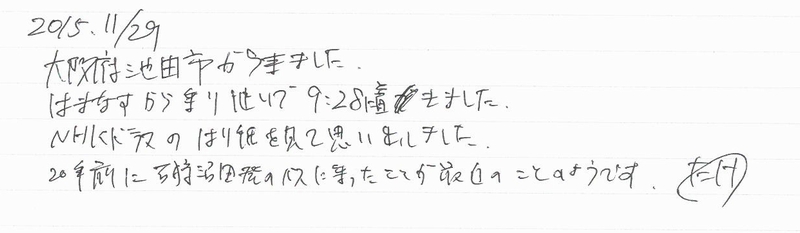 2015.11/29
大阪府池田市から来ました.
はまなすから乗り継いで 9:28に着きました.
NHKドラマのはり紙を見て思い出しました.
20年前に 石狩沼田発のバスに乗ったことが最近のことのようです. たけ